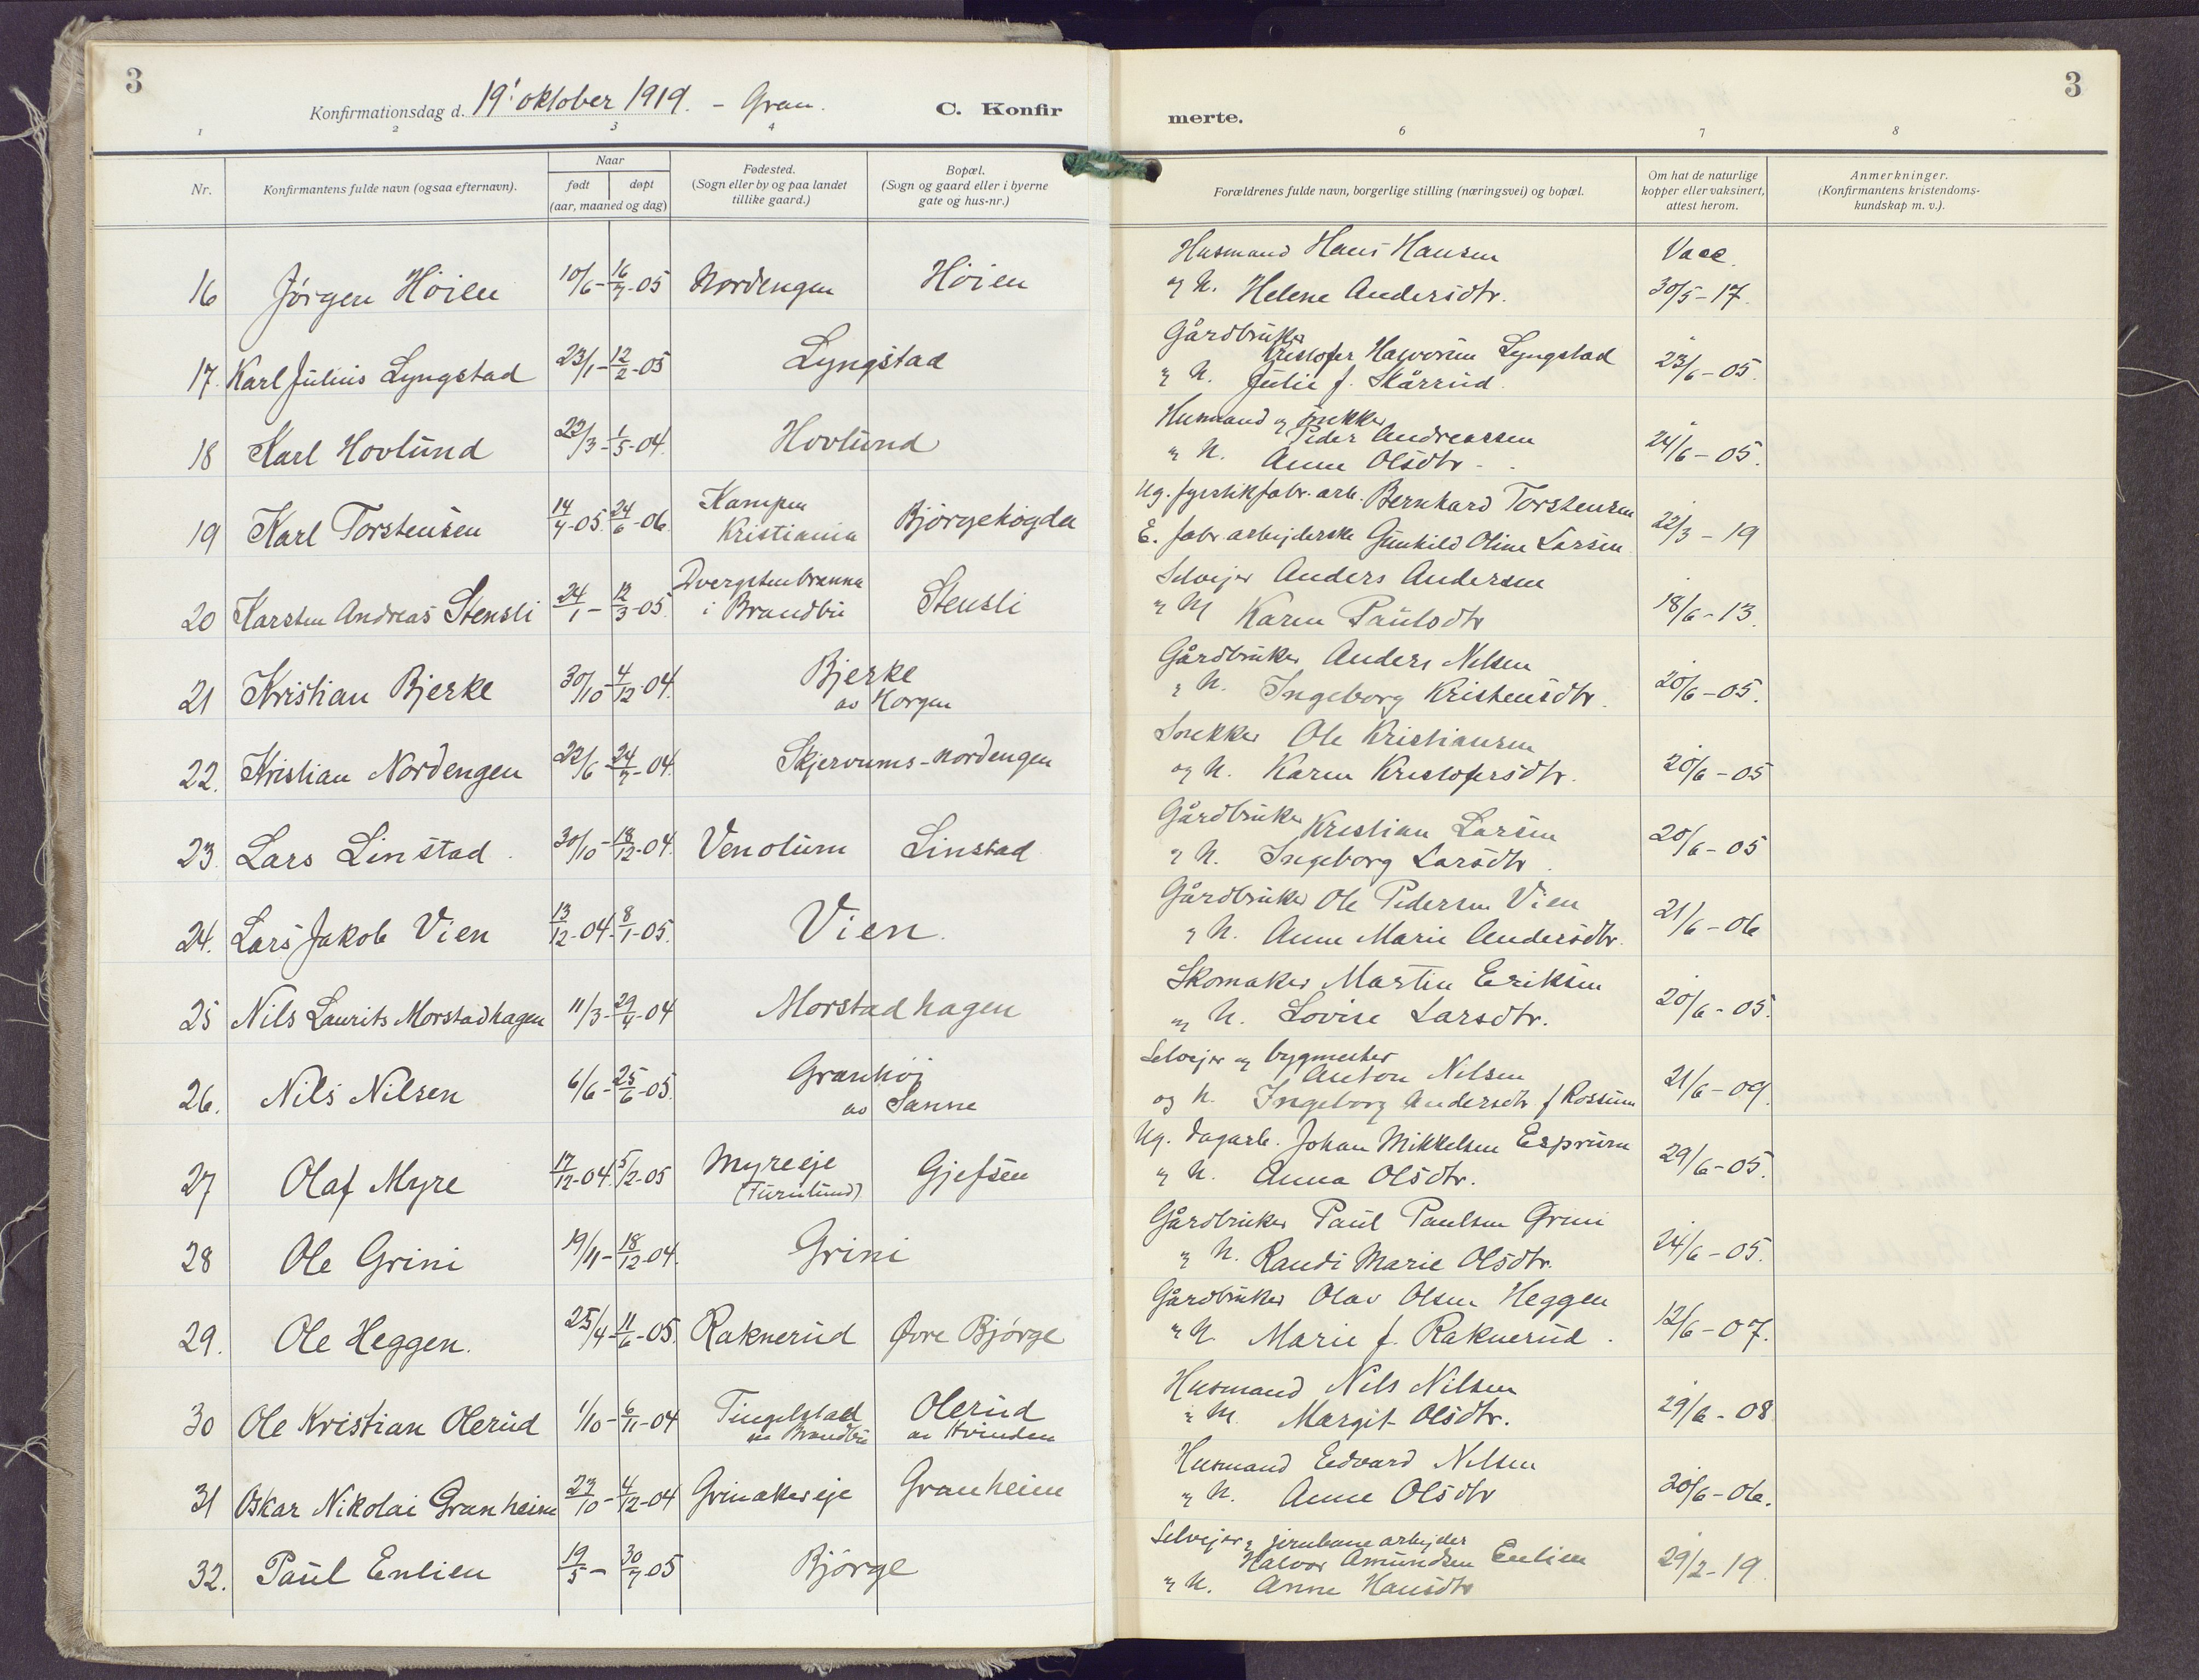 3
Konfirmationsdag d. 19' oktober 1919. - Gran.
C. Konfir
merte.
3
1 2 3 4 6 7 8
Nr.
Konfirmantens fulde navn (ogsaa efternavn).
Naar
født døpt
(aar, maaned og dag)
Fødested.
(Sogn eller by og paa landet
tillike gaard.)
Bopæl.
(Sogn og gaard eller i byerne
gate og hus-nr.)
Forældrenes fulde navn, borgerlige stilling (næringsvei) og bopæl.
Om hat de naturlige
kopper eller vaksinert,
attest herom.
Anmerkninger.
(Konfirmantens kristendoms-
kundskap m. v.).
16 Jørgen Høien 10/6 - 16/7-05 Nordengen Høien
Husmand Hans Hansen
og h. Helene Andersdtr.
Vacc.
30/5-17.
17. Karl Julius Lyngstad 23/1 - 12/2-05 Lyngstad
Gårdbruker
Kristofer Halvorsen Lyngstad
" h. Julie f. Skårrud.
23/6-05.
18 Karl Hovlund 22/3 - 1/5-04. Hovlund
Husmand og snekker
Peder Andreassen
" h. Anne Olsdtr.
24/6-05.
19 Karl Torstensen 14/4-05. 24/6-06. Kampen
Kristiania
Bjørgehøgda
Ug. fyrstikfabr. arb. Bernhard Torstensen
E. fabr arbejderske Gunhild Oline Larsen
22/3-19
20 Karsten Andreas Stensli 24/1 - 12/3-05. Dvergstenbrenna
i Brandbu
Stensli
Selvejer Anders Andersen
" h. Karen Paulsdtr
18/6-13.
21 Kristian Bjerke 30/10 - 4/12-04. Bjerke
av Horgen
Gårdbruker Anders Nilsen
" h. Ingeborg Kristensdtr.
20/6-05.
22. Kristian Nordengen 22/6 - 24/7-04. Skjervums-nordengen
Snekker Ole Kristiansen
og h. Karen Kristofersdtr.
20/6-05
23. Lars Linstad. 30/10 - 18/12-04. Venolum Linstad
Gårdbruker Kristian Larsen
" h. Ingeborg Larsdtr.
20/6-05
24. Lars Jakob Vien 13/12-04. 8/1-05. Vien.
Gårdbruker Ole Pedersen Vien
" h. Anne Marie Andersdtr.
21/6-06
25 Nils Laurits Morstadhagen 11/3 - 29/4-04 Morstadhagen
Skomaker Martin Eriksen
" h. Lovise Larsdtr.
20/6-05.
26. Nils Nilsen 6/6 - 25/6-05. Granhøi
av Sanne
Selvejer og bygmester
Anton Nilsen
og h. Ingeborg Andersdtr f Rossum
21/6-09.
27 Olaf Myre 17/12-04. 5/2-05 Myreeje
(Furulund)
Gjefsen
Ug. dagarb. Johan Mikkelsen Esprum
" h. Anna Olsdtr.
29/6-05.
28 Ole Grini 19/11 - 18/12-04. Grini
Gårdbruker Paul Paulsen Grini
" h. Randi Marie Olsdtr.
24/6-05.
29. Ole Heggen. 25/4 - 11/6-05. Raknerud Øvre Bjørge
Gårdbruker Olav Olsen Heggen
" h. Marie f. Raknerud.
12/6-07.
30 Ole Kristian Olerud 1/10 - 6/11-04 Tingelstad
Brandbu
Olerud
av Hvinden
Husmand Nils Nilsen
" h. Margit Olsdtr.
29/6-08
31 Oskar Nikolai Granheim 23/10 - 4/12-04 Grinakereje Granheim
Husmand Edvard Nilsen
" h. Anne Olsdtr
20/6-06.
32. Paul Enlien 19/5 - 30/7-05 Bjørge
Selvejer og jernbanearbejder
Halvor Amundsen Enlien
" h. Anne Hansdtr
29/2-19.